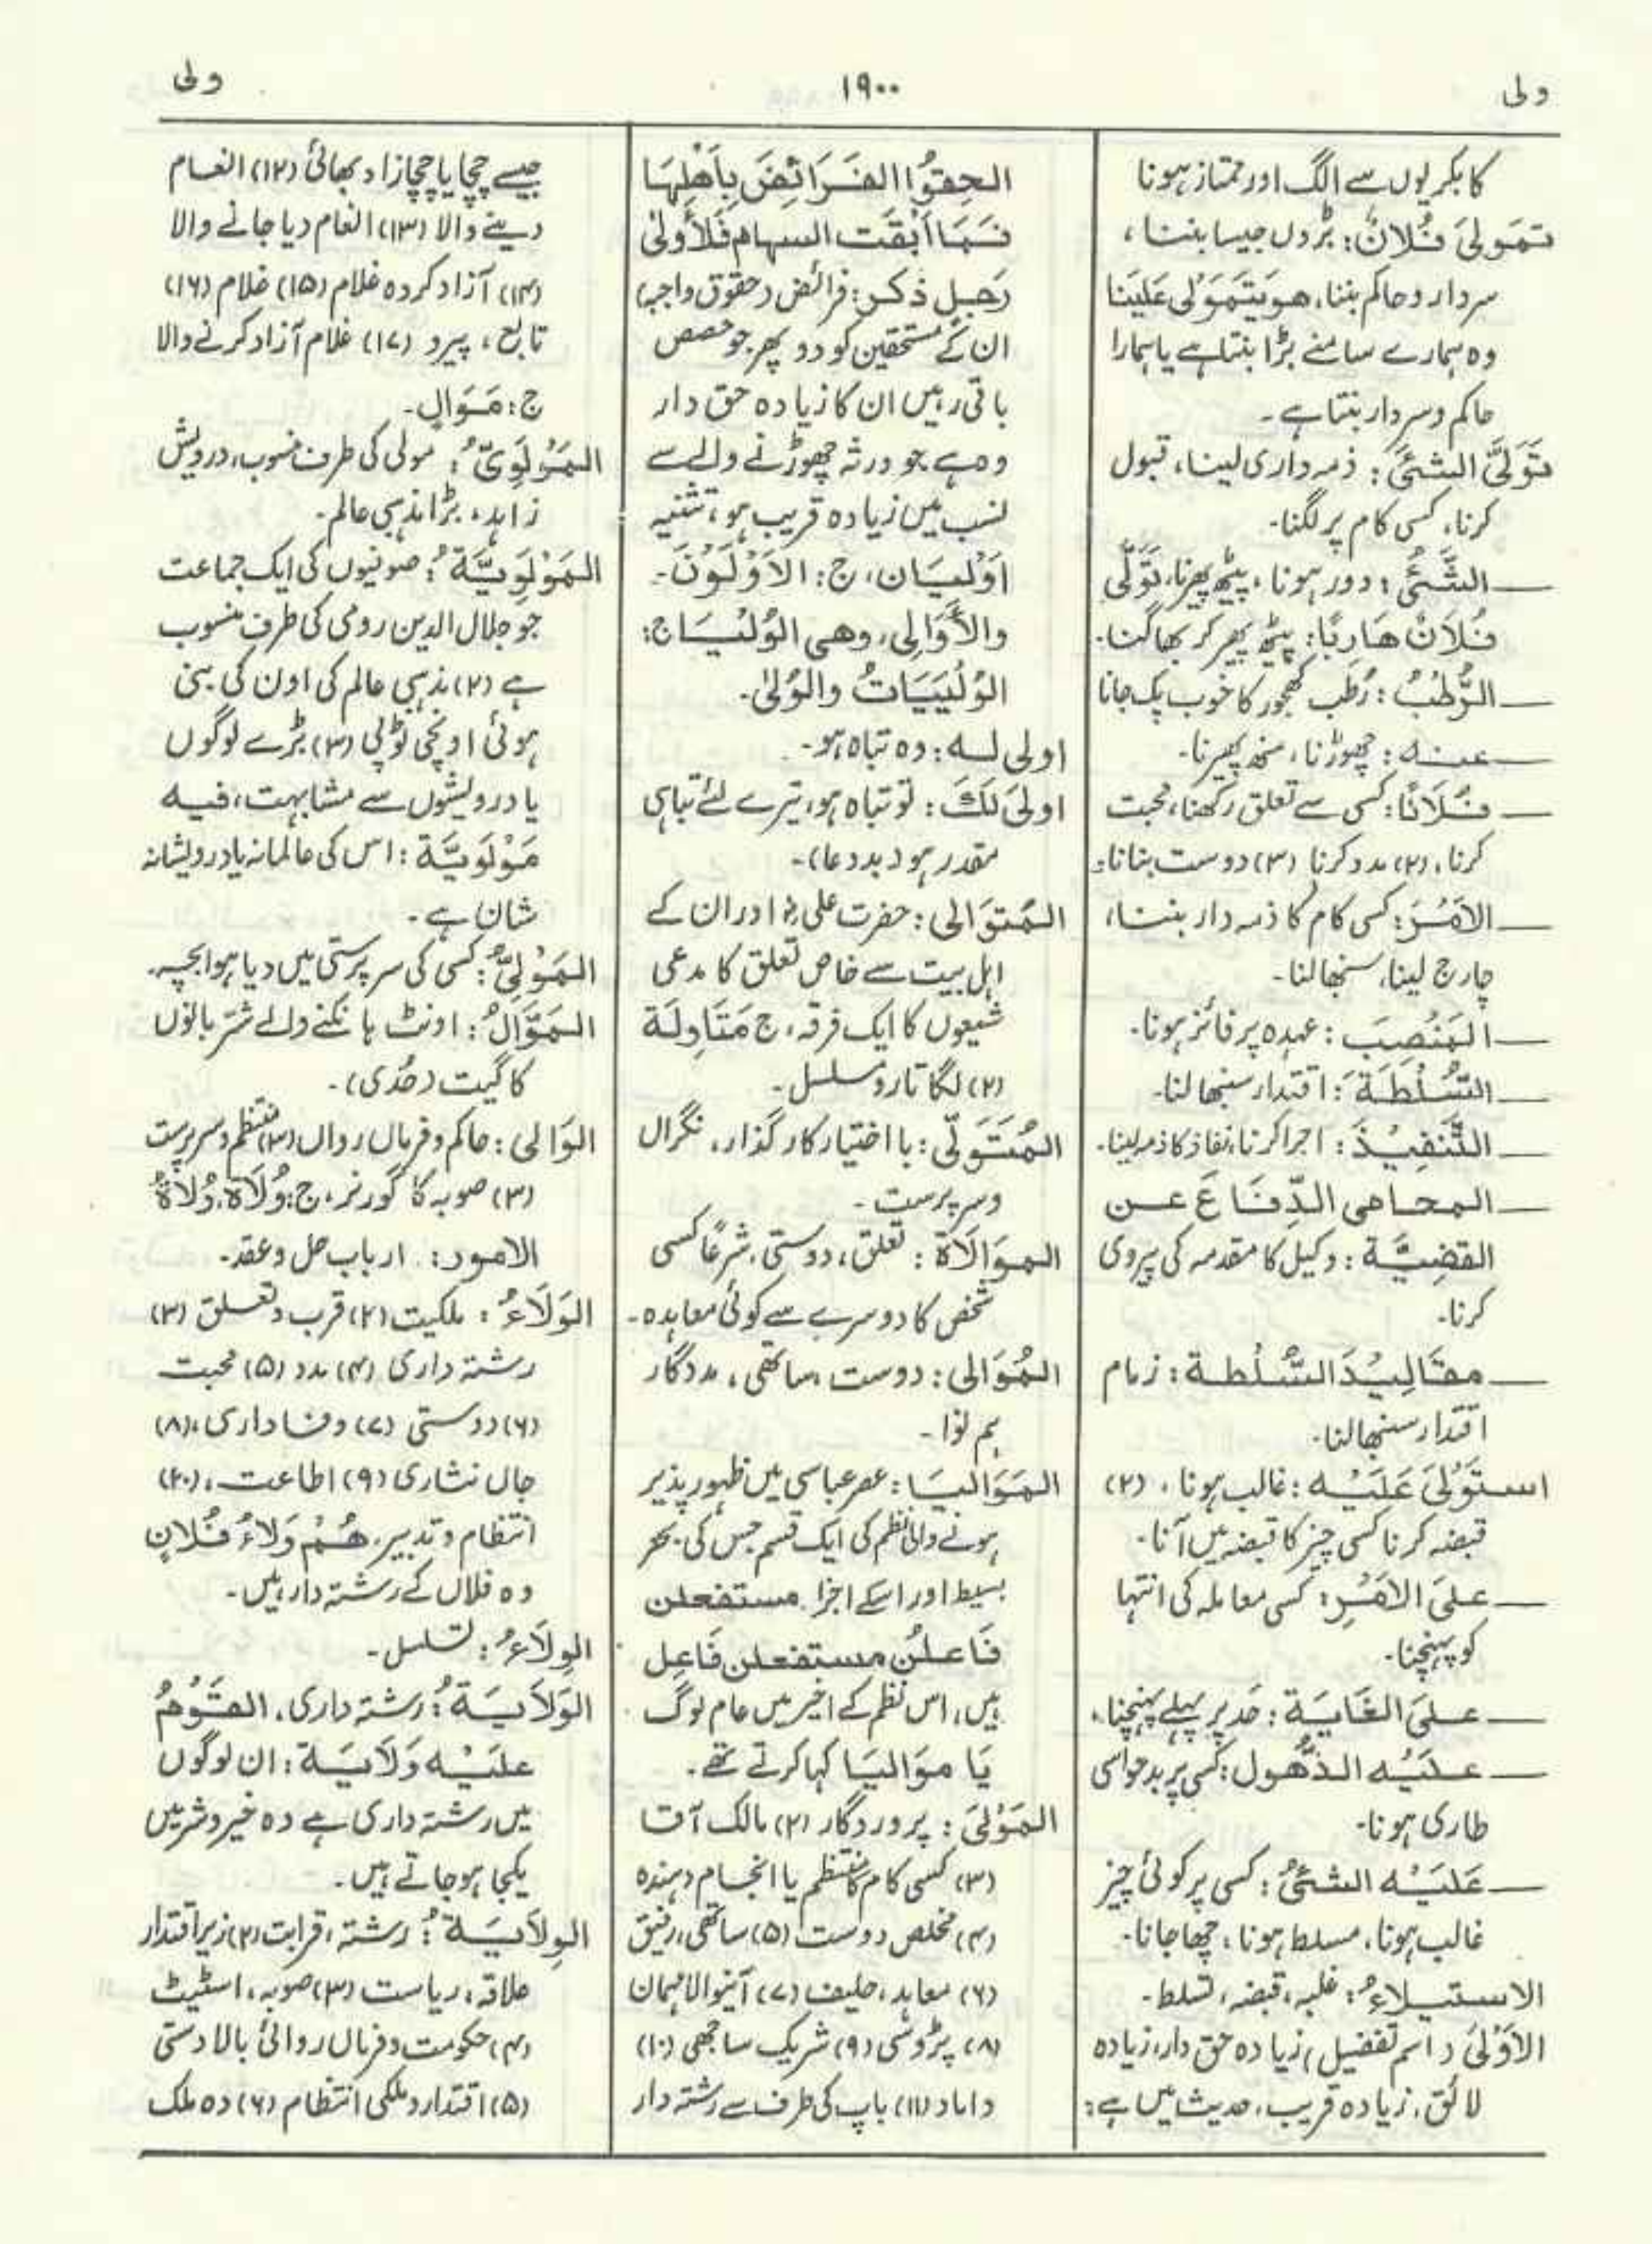 ولی
۱۹۰۰
ولی
کا بکریوں سے الگ اور ممتاز ہونا
تمَولیَ فُلانٌ: بڑوں جیسا بننا،
سردار و حاکم بننا، هو یَتَمَوْلی عَلَینَا
وہ ہمارے سامنے بڑا بنتا ہے یا ہمارا
حاکم و سردار بنتا ہے۔
تَوَلیَّ الشئیَ: ذمہ داری لینا، قبول
کرنا، کسی کام پر لگنا۔
— الشَّئُی: دور ہونا، پیٹھ پھیرنا، تَوَلّٰی
فُلاَنٌ هَارِبًا: پیٹھ پھیر کر بھاگنا۔
— الرُّطَبُ: رُطَب کھجور کا خوب پک جانا
— عنہ: چھوڑنا، منھ پھیرنا۔
— فُلَانًا: کسی سے تعلق رکھنا، محبت
کرنا، (۲) مدد کرنا (۳) دوست بنانا۔
— الاَمْرَ: کسی کام کا ذمہ دار بننا،
چارج لینا، سنبھالنا۔
— المَنْصِبَ: عہدہ پر فائز ہونا۔
— السُّلْطَةَ: اقتدار سنبھالنا۔
— التَّنفِیْذَ: اجرا کرنا، نفاذ کا ذمہ لینا۔
— المحامی الدِّفَاعَ عن
القضِیَّة: وکیل کا مقدمہ کی پیروی
کرنا۔
— مقَالِیْدَ السُّلْطة: زمام
اقتدار سنبھالنا۔
استَوْلیَ عَلَیْه: غالب ہونا، (۲)
قبضہ کرنا کسی چیز کا قبضہ میں آنا۔
— علیَ الاَمْرِ: کسی معاملہ کی انتہا
کو پہنچنا۔
— علیَ الغَایَة: حد پر پہلے پہنچنا۔
— علَیْه الذُّهول: کسی پر بدحواسی
طاری ہونا۔
— عَلَیْه الشئیُ: کسی پر کوئی چیز
غالب ہونا، مسلط ہونا، چھا جانا۔
الاستیلاءُ: غلبہ، قبضہ، تسلط۔
الاَوْلیَ (اسم تفضیل) زیادہ حق دار، زیادہ
لائق، زیادہ قریب، حدیث میں ہے:
الحِقوُا الفَرَائِضَ بِاَهْلِهَا
فَمَا اَبْقَت السهام فَلِأَولیٰ
رَجلٍ ذکر: فرائض (حقوق واجبہ)
ان کے مستحقین کو دو پھر جو حصص
باقی رہیں ان کا زیادہ حق دار
وہ ہے جو ورثہ چھوڑنے والے سے
نسب میں زیادہ قریب ہو، تثنیہ
اَوْلَیَان، ج: الاَوْلَوْنَ۔
والأَوَالِی، وهی الوُلْیَا ج:
الوُلْیَیَاتُ والوُلیٰ۔
اولی لہ: وہ تباہ ہو۔
اولیَ لکَ: تو تباہ ہو، تیرے لئے تباہی
مقدر ہو (بددعا)۔
المُتوَالی: حضرت علیؓ اور ان کے
اہل بیت سے خاص تعلق کا مدعی
شیعوں کا ایک فرقہ، ج مَتَاوِلَة
(۲) لگاتار و مسلسل۔
المُتَوَلّی: با اختیار کار گذار، نگراں
و سرپرست۔
الموَالَاة: تعلق، دوستی، شرعًا کسی
شخص کا دوسرے سے کوئی معاہدہ۔
المُوَالی: دوست، ساتھی، مددگار
ہم نوا۔
المَوَالیَا: عصر عباسی میں ظہور پذیر
ہونے والی نظم کی ایک قسم جس کی بحر
بسیط اور اسکے اجزا، مستفعلن
فَاعلُن مستفعلن فَاعِل
ہیں، اس نظم کے اخیر میں عام لوگ
یَا موَالیَا کہا کرتے تھے۔
المَوْلیَ: پروردگار (۲) مالک آقا
(۳) کسی کام کا منتظم یا انجام دہندہ
(۴) مخلص دوست (۵) ساتھی، رفیق
(۶) معاہد، حلیف (۷) آنیوالا مہمان
(۸) پڑوسی (۹) شریک ساجھی (۱۰)
داماد (۱۱) باپ کی طرف سے رشتہ دار
جیسے چچا یا چچازاد بھائی (۱۲) انعام
دینے والا (۱۳) انعام دیا جانے والا
(۱۴) آزاد کردہ غلام (۱۵) غلام (۱۶)
تابع، پیرو (۱۷) غلام آزاد کرنے والا
ج: مَوَالٍ۔
المَوْلَوِیُّ: مولی کی طرف منسوب، درویش
زاہد، بڑا مذہبی عالم۔
المَوْلَوِیَّةُ: صوفیوں کی ایک جماعت
جو جلال الدین رومی کی طرف منسوب
ہے (۲) مذہبی عالم کی اون کی بنی
ہوئی اونچی ٹوپی (۳) بڑے لوگوں
یا درویشوں سے مشابہت، فیه
مَوْلَوِیَّة: اس کی عالمانہ یا درویشانہ
شان ہے۔
المَوْلِیُّ: کسی کی سرپرستی میں دیا ہوا بچہ۔
المَوَّالُ: اونٹ ہانکنے والے شتر بانوں
کا گیت (حُدی)۔
الوَالی: حاکم و فرماں رواں (۲) منتظم و سرپرست
(۳) صوبہ کا گورنر، ج: وُلَاة، وُلاَةُ
الامور: ارباب حل و عقد۔
الوَلَاءُ: ملکیت (۲) قرب و تعلق (۳)
رشتہ داری (۴) مدد (۵) محبت
(۶) دوستی (۷) وفاداری، (۸)
جاں نثاری (۹) اطاعت، (۲۰)
انتظام و تدبیر، هُمْ وَلاءُ فُلانٍ
وہ فلاں کے رشتہ دار ہیں۔
الوِلَاءُ: تسلسل۔
الوَلاَیَةُ: رشتہ داری، القَوْمُ
علَیْه وَلاَیَة: ان لوگوں
میں رشتہ داری ہے وہ خیر و شر میں
یکجا ہو جاتے ہیں۔
الوِلاَیَةُ: رشتہ، قرابت (۲) زیر اقتدار
علاقہ، ریاست (۳) صوبہ، اسٹیٹ
(۴) حکومت و فرماں روائی بالادستی
(۵) اقتدار و ملکی انتظام (۶) وہ ملک